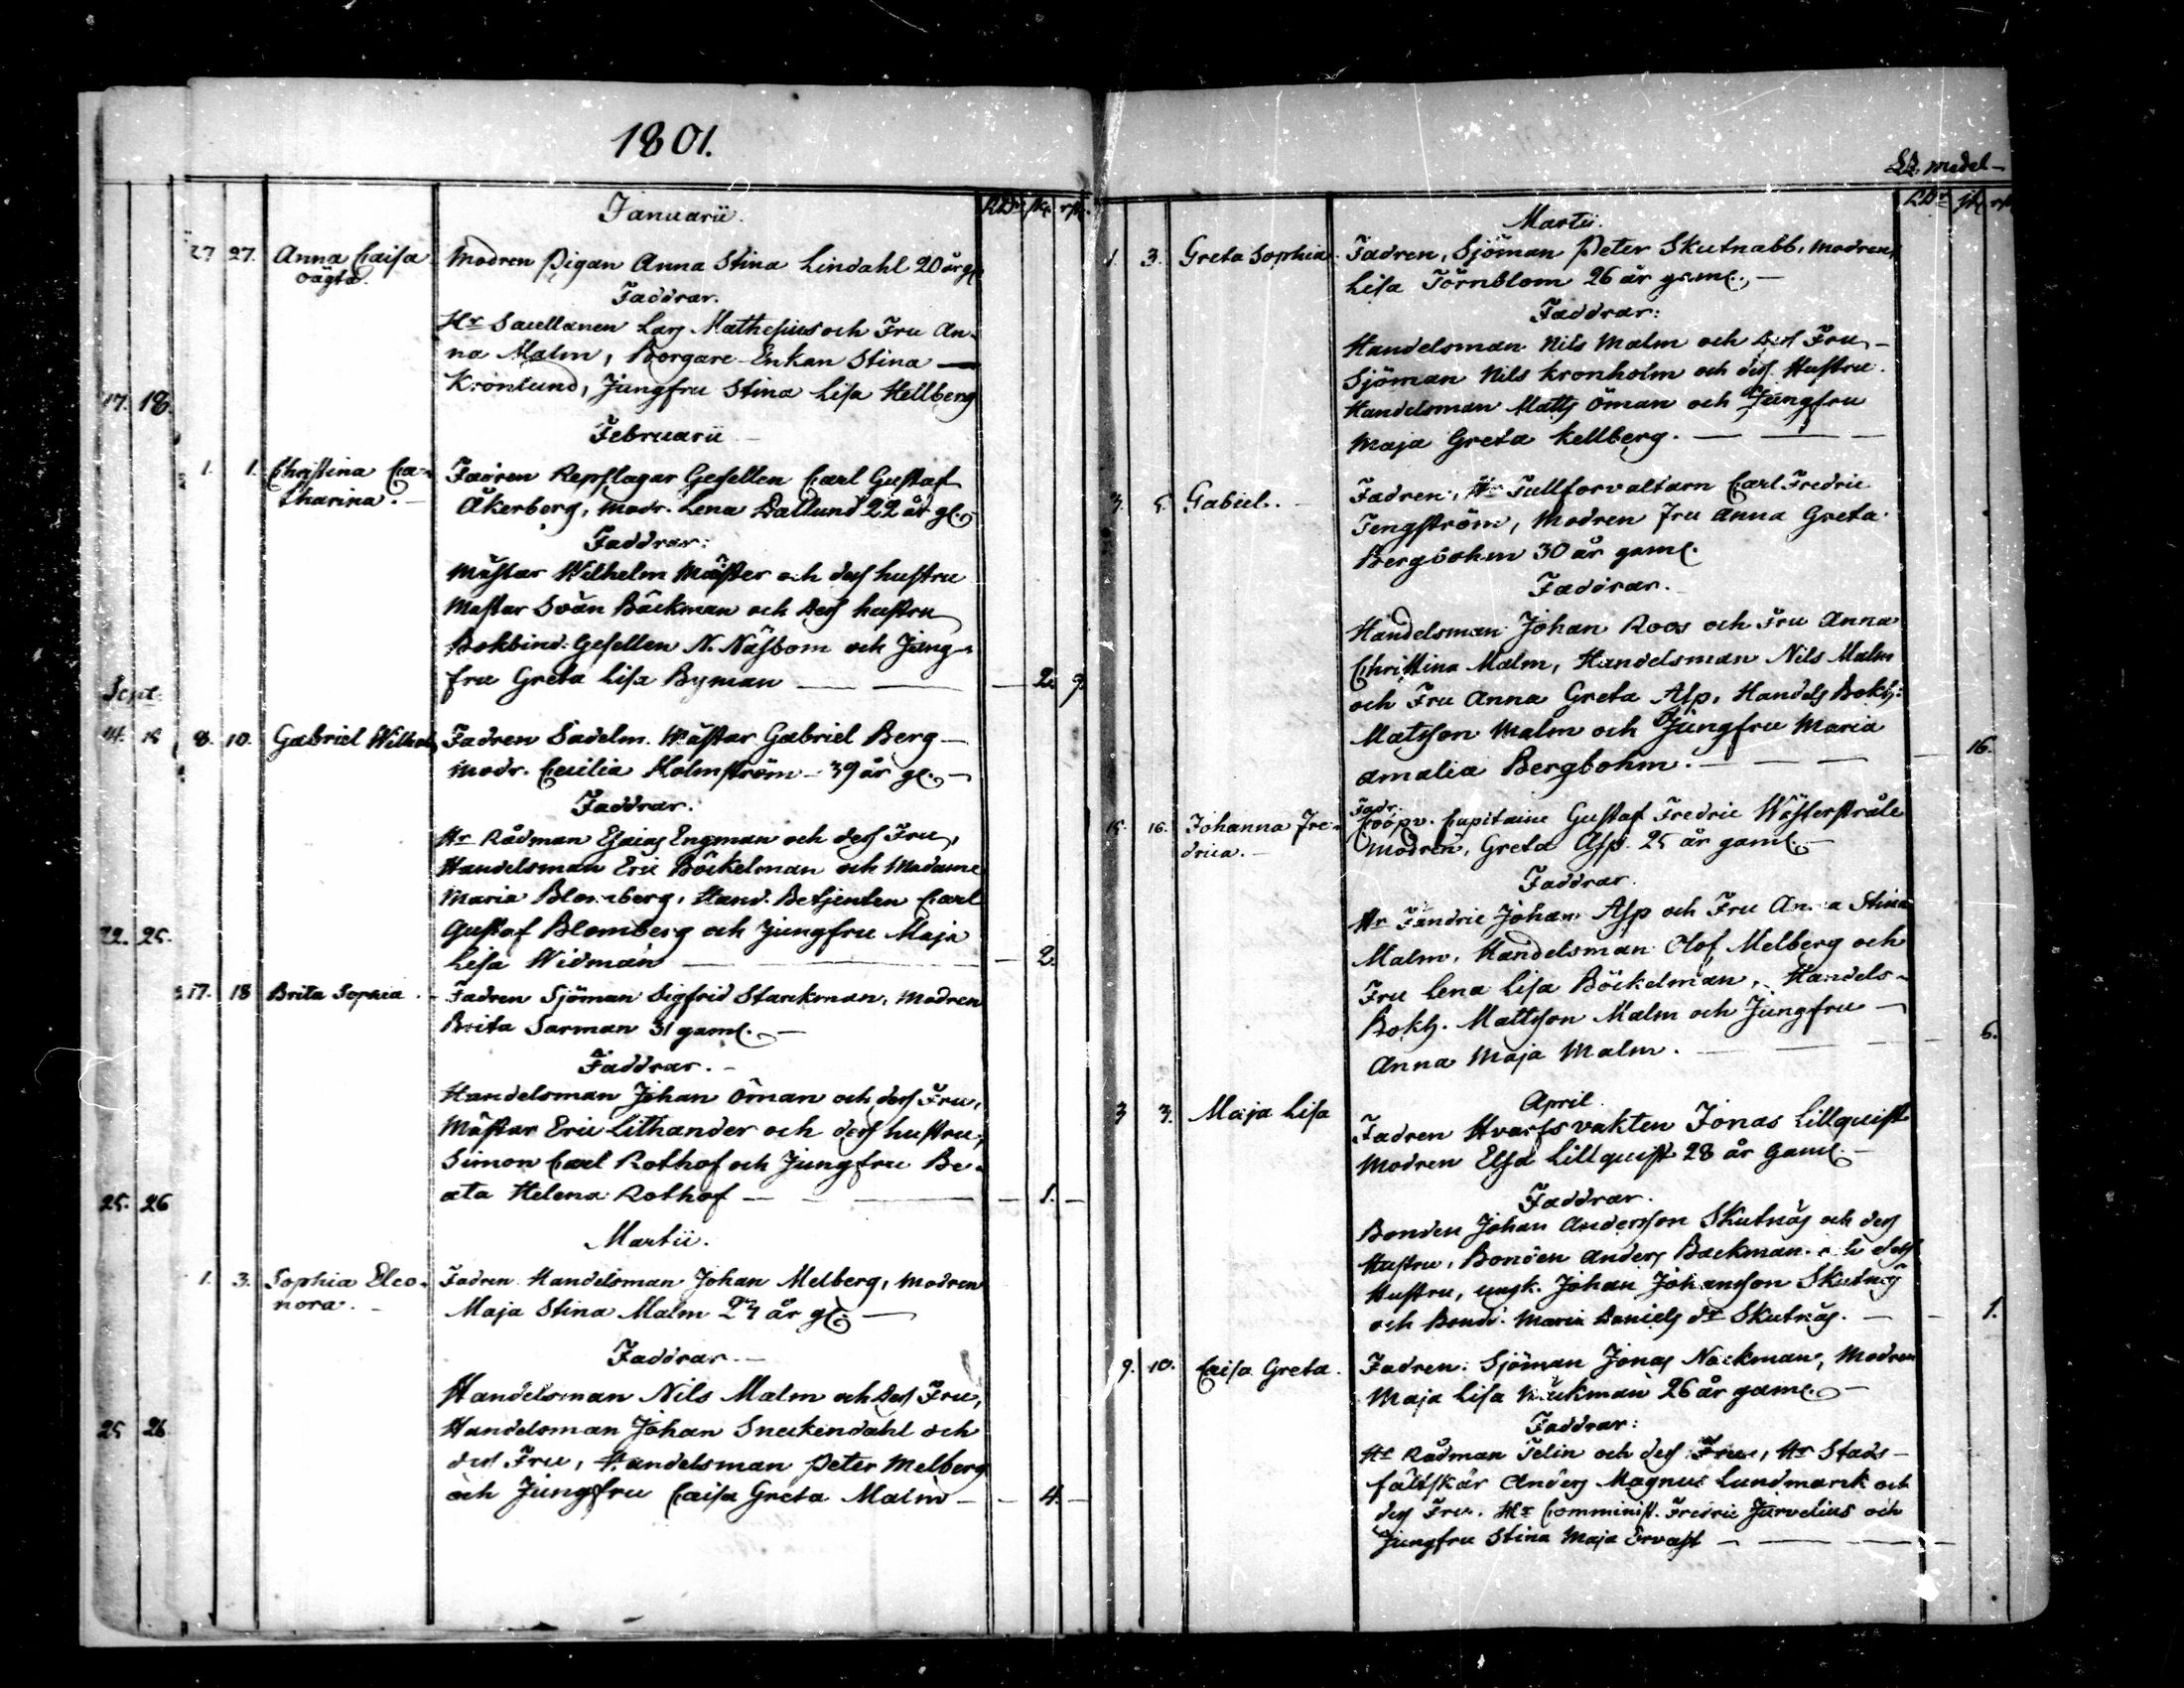 1801.
Januarii.
RDr sk. rst.
27 27. Anna Caisa Modren Pigan Anna Stina Lindahl 20 år gl.
oägta.
Faddrar.
Hr Lars Mathesius och Fru An-
na Malm, Borgare Enkan Stina —
Kronlund, Jungfru Stina Lisa Hellberg
17. 18.
Februarii
1. 1. Christina Ca- Fadren Repslagar Gesellen Carl Gustaf
tharina. — Åkerberg, Modr. Lena Dallund 22 år gl. —
Faddrar:
Mästar Wilhelm Mäster och dess hustru
Mästar Svän Bäckman och dess hustru
Bokbind. Gesellen N. Näsbom och Jung-
fru Greta Lisa Byman — — — 2. 9.
Sept.
14. 15 8. 10. Gabriel Wilhelm Fadren Sadelm. Mästar Gabriel Berg —
Modr. Cecilia Holmström — 39 år gl. —
Faddrar.
Hr Rådman Esaias Engman och dess Fru,
Handelsman Eric Böckelman och Madame
Maria Blomberg, Hand. Betjenten Carl
Gustaf Blomberg och Jungfru Maja
22. 25.
Lisa Widman — — — 2.
17. 18 Brita Sophia. Fadren Sjöman Sigfrid Starckman, Modren
Brita Sarman 31 gaml. —
Faddrar. —
Handelsman Johan Öman och dess Fru,
Mästar Eric Lithander och dess hustru,
Simon Carl Rothof och Jungfru Be-
ata Helena Rothof — — — 1. —
25. 26
Martii.
1. 3. Sophia Eleo- Fadren Handelsman Johan Melberg, Modren
nora. — Maja Stina Malm 23 år gl. —
Faddrar. —
Handelsman Nils Malm och dess Fru,
Handelsman Johan Sneckendahl och
25 26
dess Fru, Handelsman Peter Melberg
och Jungfru Caisa Greta Malm — — 4. —
medel —
RDr sk rst
Martii.
1. 3. Greta Sophia. Fadren, Sjöman Peter Skutnabb, Modren,
Lisa Törnblom 26 år gaml. —
Faddrar:
Handelsman Nils Malm och dess Fru, —
Sjöman Nils Kronholm och dess Hustru.
Handelsman Matts Öman och Jungfru
Maja Greta Kellberg. — — —
3. 5. Gabiel. — Fadren, Hr Tullforvaltarn Carl Fredric
Tengström, Modren Fru Anna Greta
Bergbohm 30 år gaml.
Faddrar.
Handelsman Johan Roos och Fru Anna
Christina Malm, Handelsman Nils Malm
och Fru Anna Greta Asp, Handels Bokh:
Matsson Malm och Jungfru Maria
Amalia Bergbohm. — — — 16.
Fadr.
15. 16. Johanna Fre- Capitaine Gustaf Fredric Wästerstråle
drica. — Modren, Greta Asp. 25 år gaml. —
Faddrar.
Hr Fändric Johan Asp och Fru Anna Stina
Malm, Handelsman Olof Melberg och
Fru Lena Lisa Böckelman, Handels-
Bokh. Mattsson Malm och Jungfru —
Anna Maja Malm. — — — 6.
April.
3 3. Maja Lisa Fadren Hvarfsvakten Jonas Lillquist
Modren Elsa Lillquist 28 år Gaml. —
Faddrar.
Bonden Johan Andersson Skutnäs och dess
Hustru, Bonden Anders Backman och dess
Hustru, ungk. Johan Johansson Skutnäs
och Bond: Maria Daniels dr Skutnäs. — — 1.
9. 10. Caisa Greta. Fadren: Sjöman Jonas Nackman, Modren
Maja Lisa Nackman 26 år gaml. —
Faddrar:
Hr Rådman Telin och dess Fru, Hr Stads-
fältskär Anders Magnus Lundmarck och
dess Fru. Hr Comminist. Fredric Jurvelius och
Jungfru Stina Maja Ervast — — —